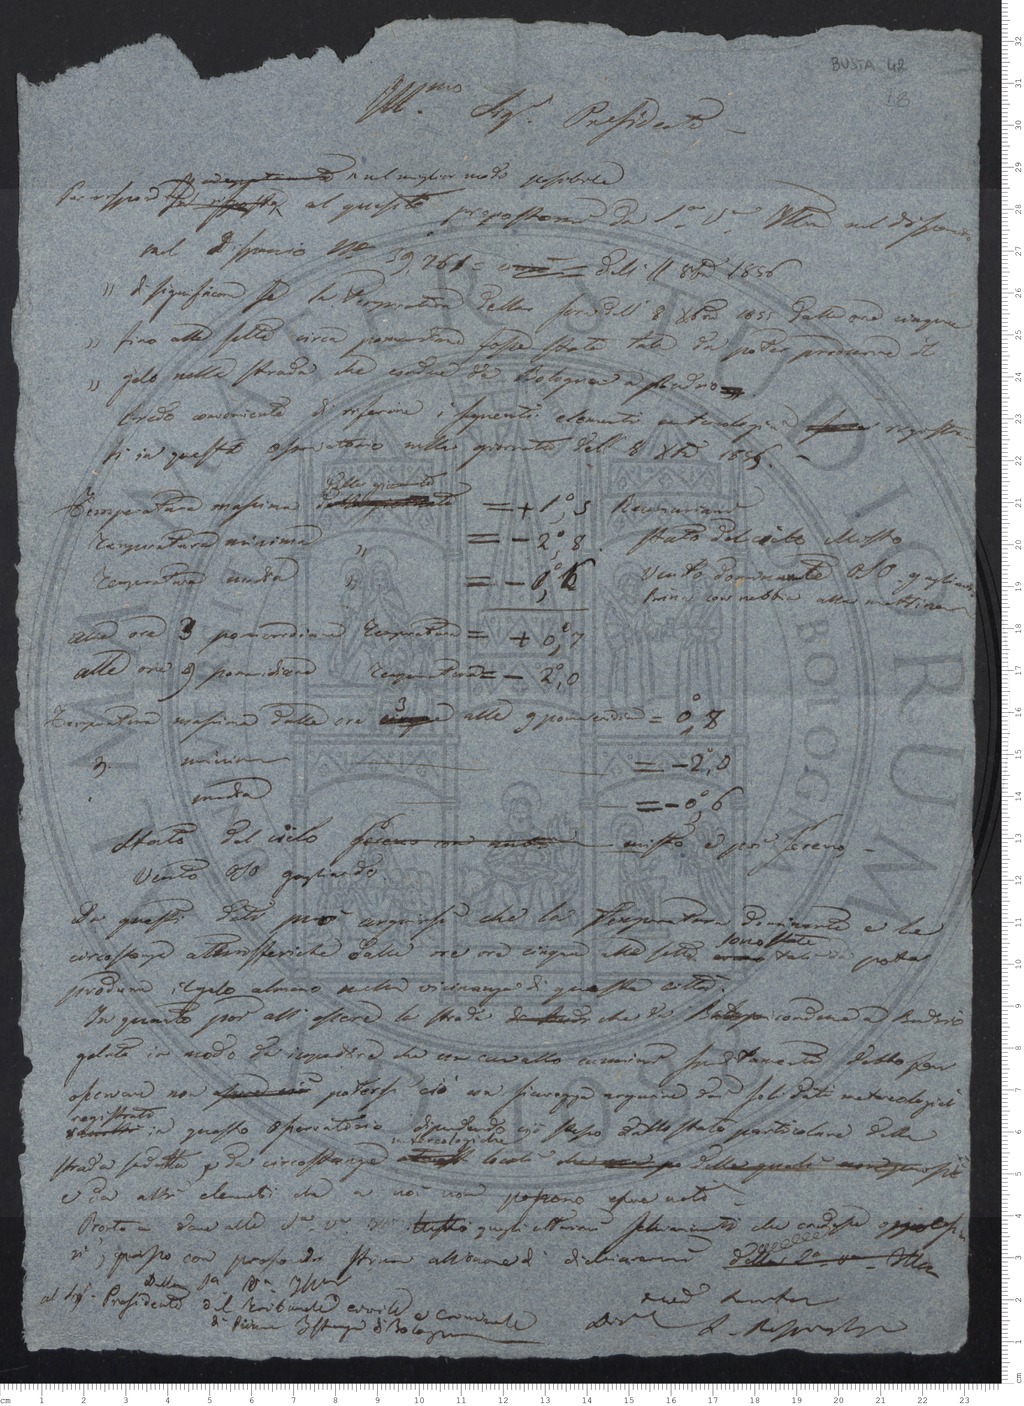 BUSTA 42
18
Ill.mo Sig.r Presidente
Per rispondere nel miglior modo possibile
al quesito propostomi da S.a V.a Ill.ma nel dispaccio
nel dispaccio N.o 39,761 = delli 11 8bre 1856
" di significare se la temperatura della sera dell' 8 Xbre 1855 dalle ore cinque
" fino alle sette circa pomeridiane fosse stata tale da poter produrre il
" gelo nella strada che conduce da Bologna a Budrio
Credo conveniente di riferire i seguenti elementi meteorologici registra-
ti in questo osservatorio nella giornata dell' 8 Xbre 1855. -
Temperatura massima della giornata = + 1°,5 Reaumuriani
Temperatura minima " = - 2°,8. Stato del cielo Misto
Temperatura media " = - 0°,6 Vento dominante OSO gagliardo
Brina con nebbia alla mattina
alle ore 3 pomeridiane Temperatura = + 0°,7
alle ore 9 pomeridiane Temperatura = - 2°,0
Temperatura massima dalle ore 3 alle 9 pomeridiane = 0°,8
" minima = - 2°,0
media = - 0°,6
Stato del cielo misto e poi sereno -
Vento OSO gagliardo.
Da questi dati può arguirsi che la Temperatura dominante e le
circostanze atmosferiche dalle ore cinque alle sette sono state tali da poter
produrre il gelo almeno nelle vicinanze di questa città.
In quanto poi all' essere la strada che da Bologna conduce a Budrio
gelata in modo da impedire che un cavallo camminasse debbo far
osservare non potersi ciò con sicurezza arguire dai soli dati meteorologici
registrati in questo Osservatorio dipendendo ciò stesso dallo stato particolare della
strada suddetta e da circostanze meteorologiche locali
e da altri elementi che a noi non possono essere noti
Pronto a dare alla S.a V.a Ill.ma quegli ulteriori schiarimenti che credesse
passo con profonda stima all' onore di dichiararmi
Della S.a V.a Ill.ma
al Sig.r Presidente del Tribunale civile e criminale
di Prima Istanza di Bologna
L. Respighi